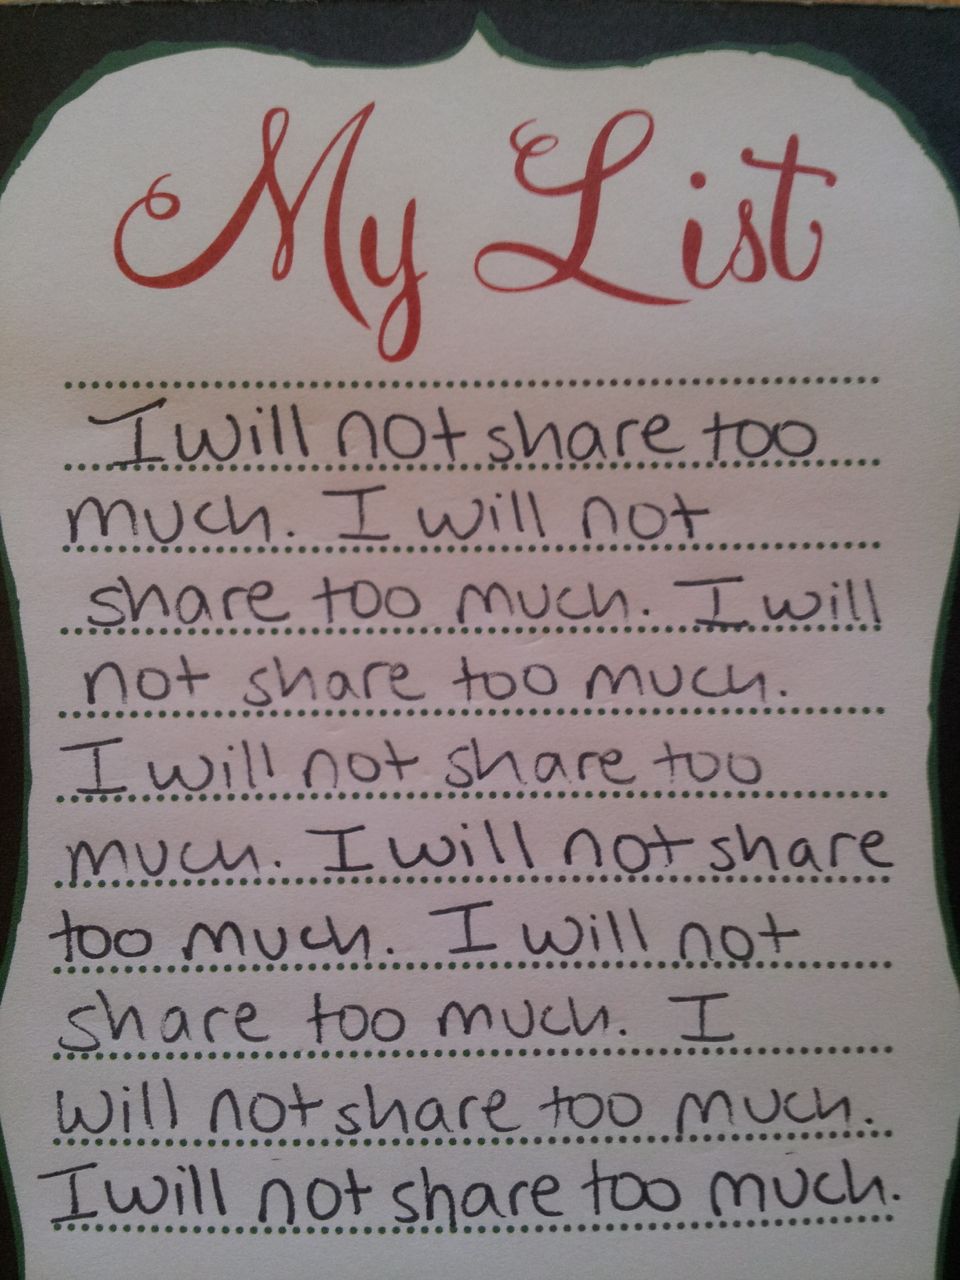 My List
I will not share too
much. I will not
share too much. I will
not share too much.
I will not share too
much. I will not share
too much. I will not
share too much. I
will not share too much.
I will not share too much.